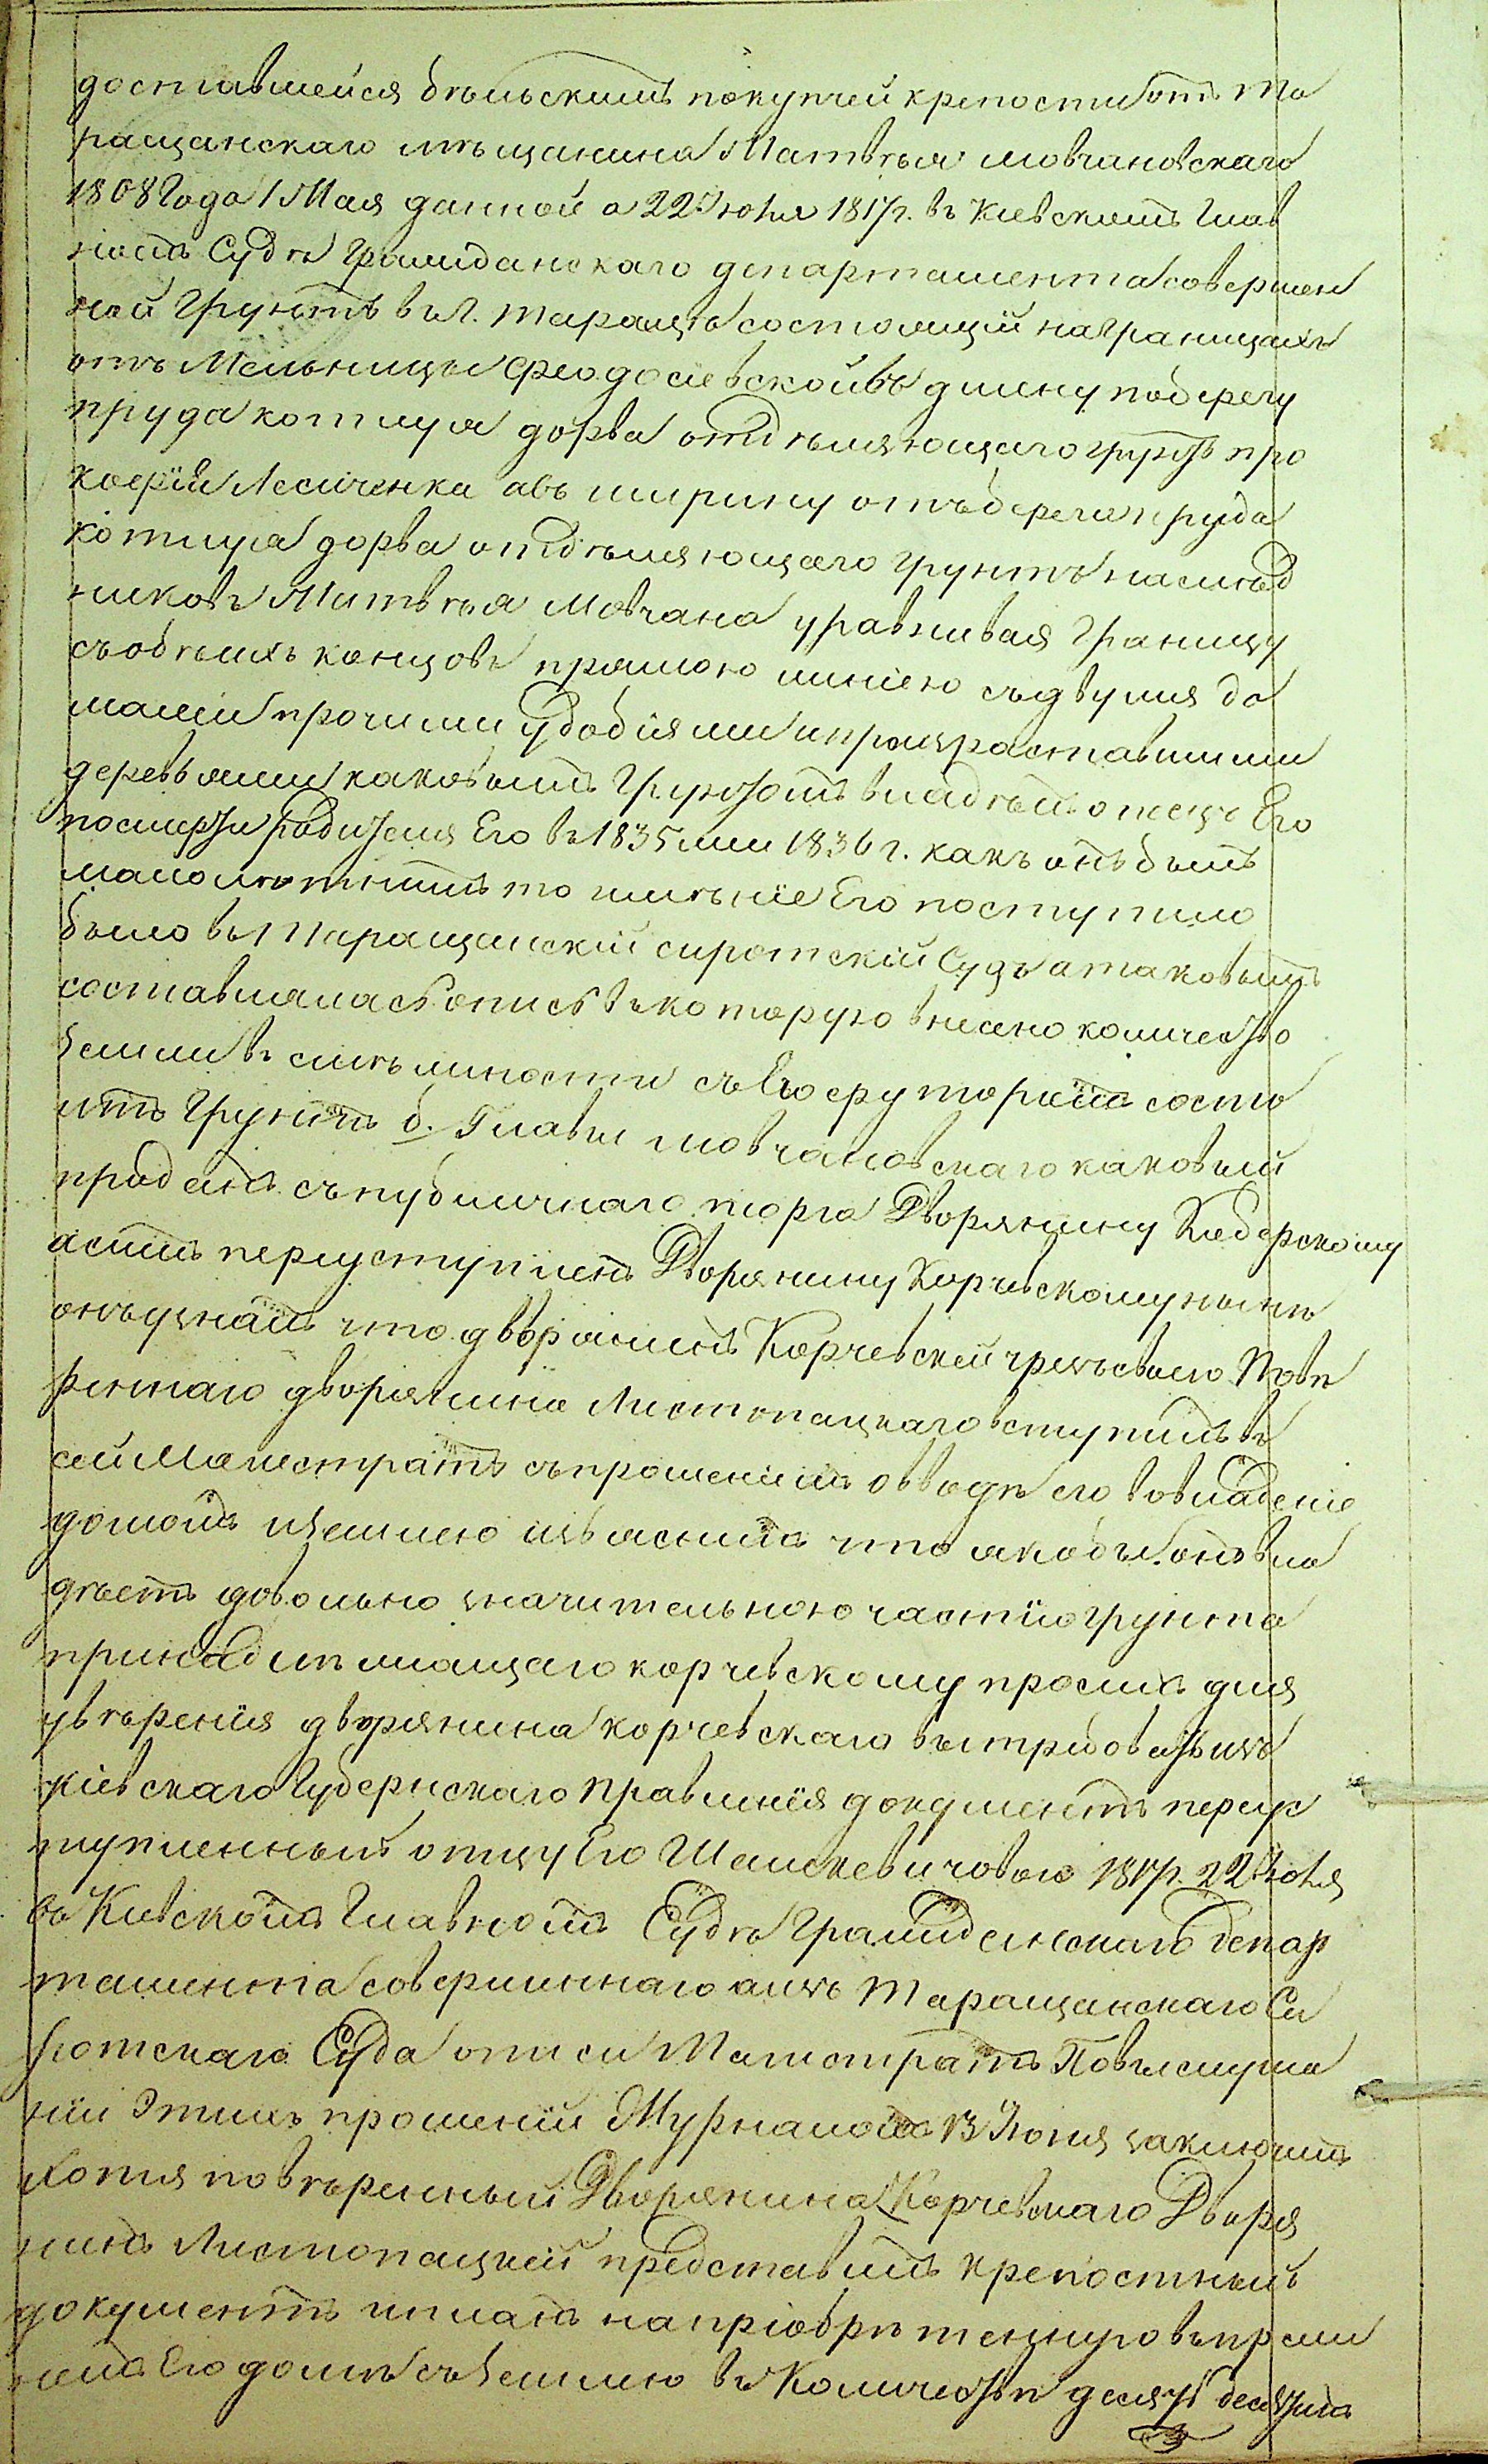 доставшейся бѣльскимъ покупчей крепости отъ Та
ращанскаго мѣщанина Матвѣя Мовчановскаго
1808 Года 1 Мая данной а 22 Июня 1817 г. въ Киевскомъ Глав
номъ Судѣ Гражданскаго департамента совершен
ной Грунтъ въ г. Тараще состоящій на границахъ
отъ Мельницы Феодосіевской въ длину по берегу
пруда котлуя дорва отдѣляющаго грунтъ про
кофія Лесиченка а въ ширину отъ берега пруда
котлуя дорва отдѣляющаго грунтъ наслѣд
никовъ Матвѣя Мовчана уравнивая границу
съ обѣихъ концовъ прямою линіею съ двумя до
мами прочими удобіями и произраставшими
деревьями каковымъ Грунтомъ владѣлъ отецъ Его
по смерти родителя Его въ 1835 или 1836 г. какъ онъ былъ
малолѣтнимъ то имѣніе Его поступило
было въ Таращанскій сиротскій Судъ а таковымъ
составлялась опись въ которую внесено количество
земли въ смѣжности съ Его
грунтъ б. Главы Мовчановскаго каковый
продан съ публичнаго торга Дворянину
а симъ переуступленъ Дворянину Корчевскому нынѣ
онъ узналъ что дворянинъ Корчевскій чрезъ своего Повѣ
реннаго дворянина Листопацкаго вступилъ въ
сей Магистратъ съ прошеніемъ о вводѣ его во владеніе
домомъ и землею изъяснилъ что якобы онъ вла
дѣетъ довольно значительною частію грунта
принадлѣжащаго Корчевскому просилъ для
увѣренія дворянина Корчевскаго вытребовать изъ
Кіевскаго Губернскаго Правленія документъ переус
тупленный отцу Его 1817 г. 22 Июня
въ Киевскомъ Главномъ Судѣ Гражданскаго Депар
тамента совершеннаго а изъ Таращанскаго Си
ротскаго Суда описи Магистратъ По выслуша
ніи Этихъ прошеній Журналомъ 13 Июня заключилъ
хотя повѣренный Дворянина Корчевскаго Дворя
нинъ Листопацкій представилъ крепостный
документъ на пріобрѣтенную
Его домъ съ Землею въ Количествѣ десять десятинъ